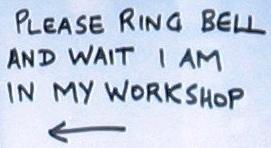 PLEASE RING BELL
AND WAIT I AM
IN MY WORKSHOP